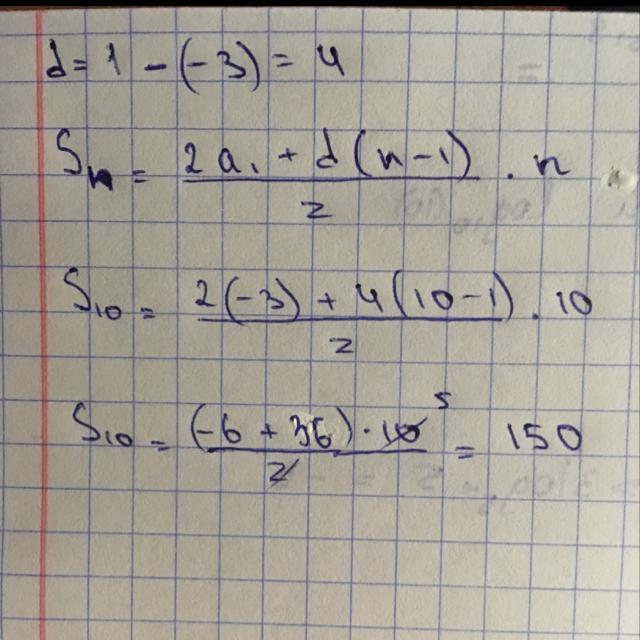 d = 1 - (-3) = 4
Sn = (2a₁ + d(n-1))/2 · n
S₁₀ = (2(-3) + 4(10-1))/2 · 10
S₁₀ = ((-6 + 36) · 10)/2 5 = 150